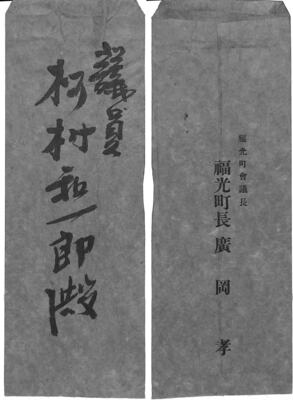 議員
柯村和一郎殿
福光町會議長
福光町長 廣岡 孝